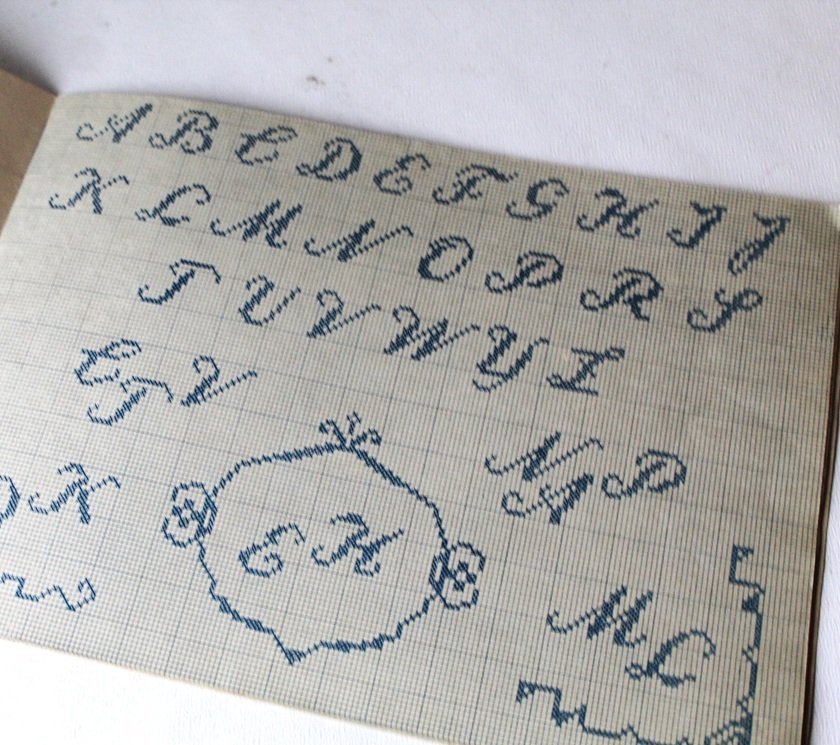 A B C D E F G H I J
K L M N O P R S
T U V W Y Z
C T V
N A P
K
E K
M L